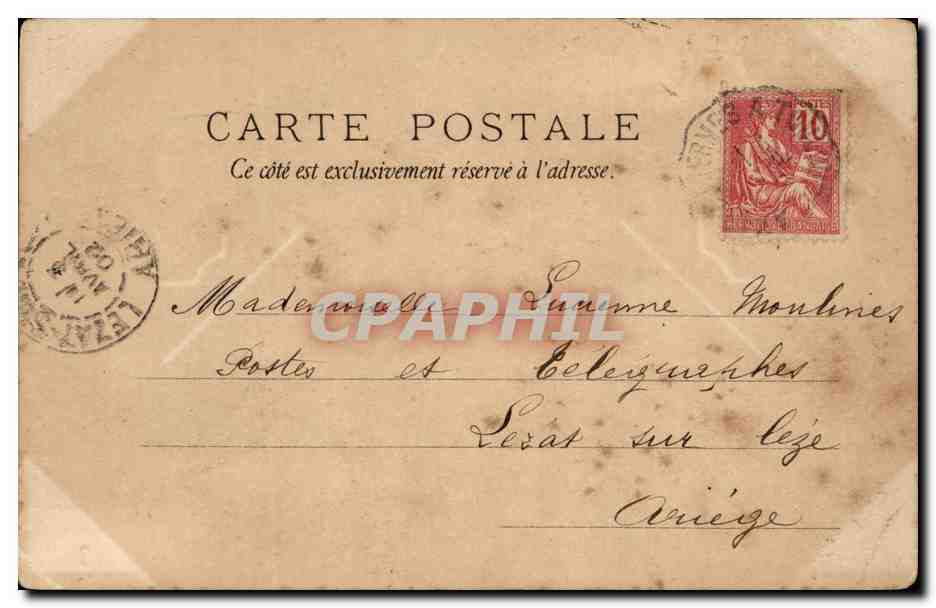 CARTE POSTALE
Ce côté est exclusivement réservé à l'adresse.
POSTES
10
Mademoiselle Lucienne Moulines
Postes et Télégraphes
Lezat sur Lèze
Ariége
LEZAT
ARIEGE
AVRIL
02
CPAPHIL